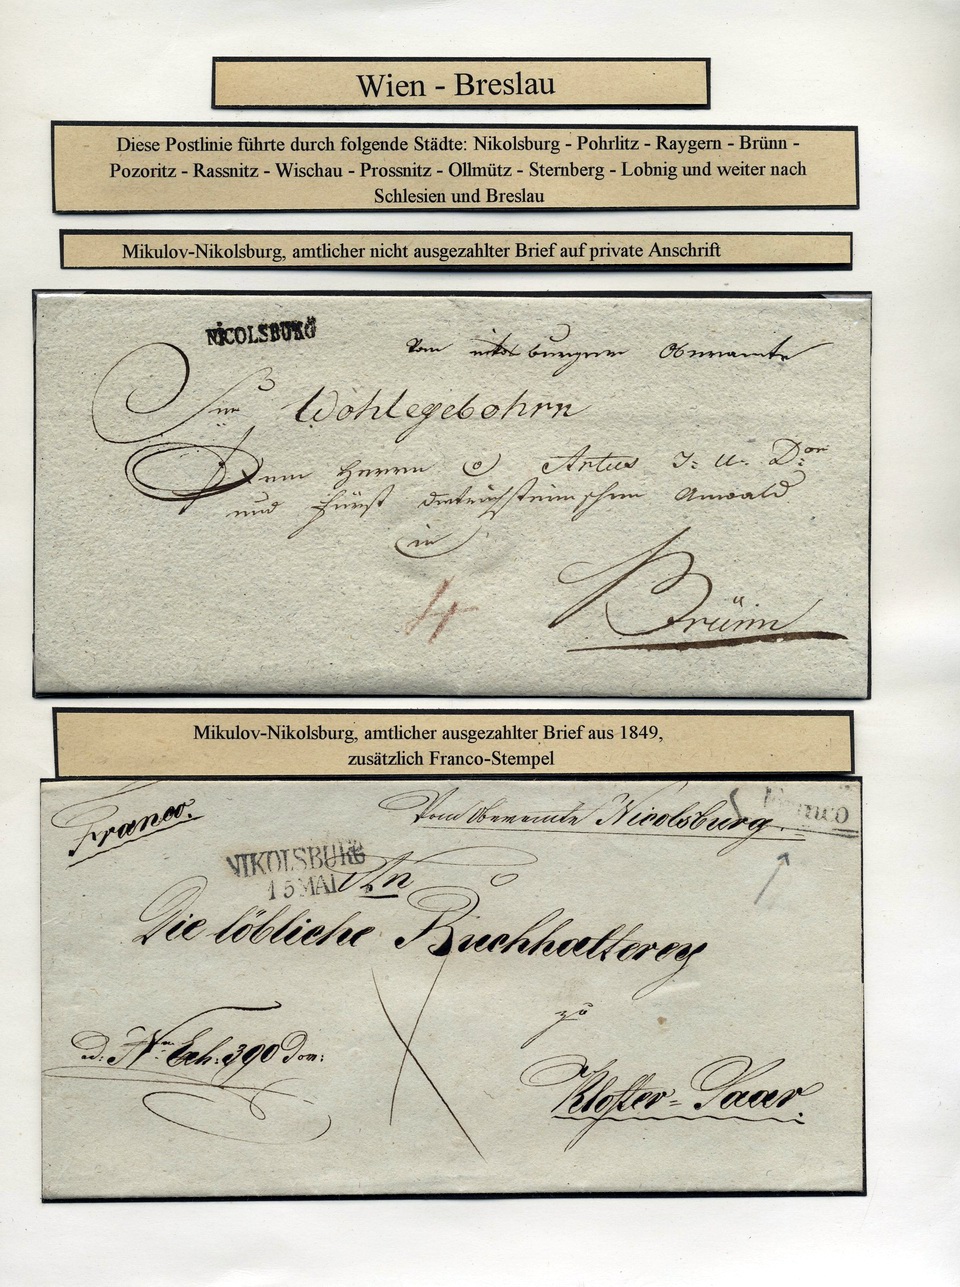 Wien - Breslau
Diese Postlinie führte durch folgende Städte: Nikolsburg - Pohrlitz - Raygern - Brünn -
Pozoritz - Rassnitz - Wischau - Prossnitz - Ollmütz - Sternberg - Lobnig und weiter nach
Schlesien und Breslau
Mikulov-Nikolsburg, amtlicher nicht ausgezahlter Brief auf private Anschrift
NICOLSBURG
Vom nikolsburger Oberamte
Wohlegebohrn
Dem Herrn Artus J: U: Dor
und Fürst dietrichsteinschen Anwald
in
Brünn
4
Mikulov-Nikolsburg, amtlicher ausgezahlter Brief aus 1849,
zusätzlich Franco-Stempel
Franco.
Vom Oberamte Nicolsburg.
Franco
NIKOLSBURG
15 MAI
An
Die löbliche Buchhalterey
zu
Exh: 390 Dom:
Kloster-Saar.